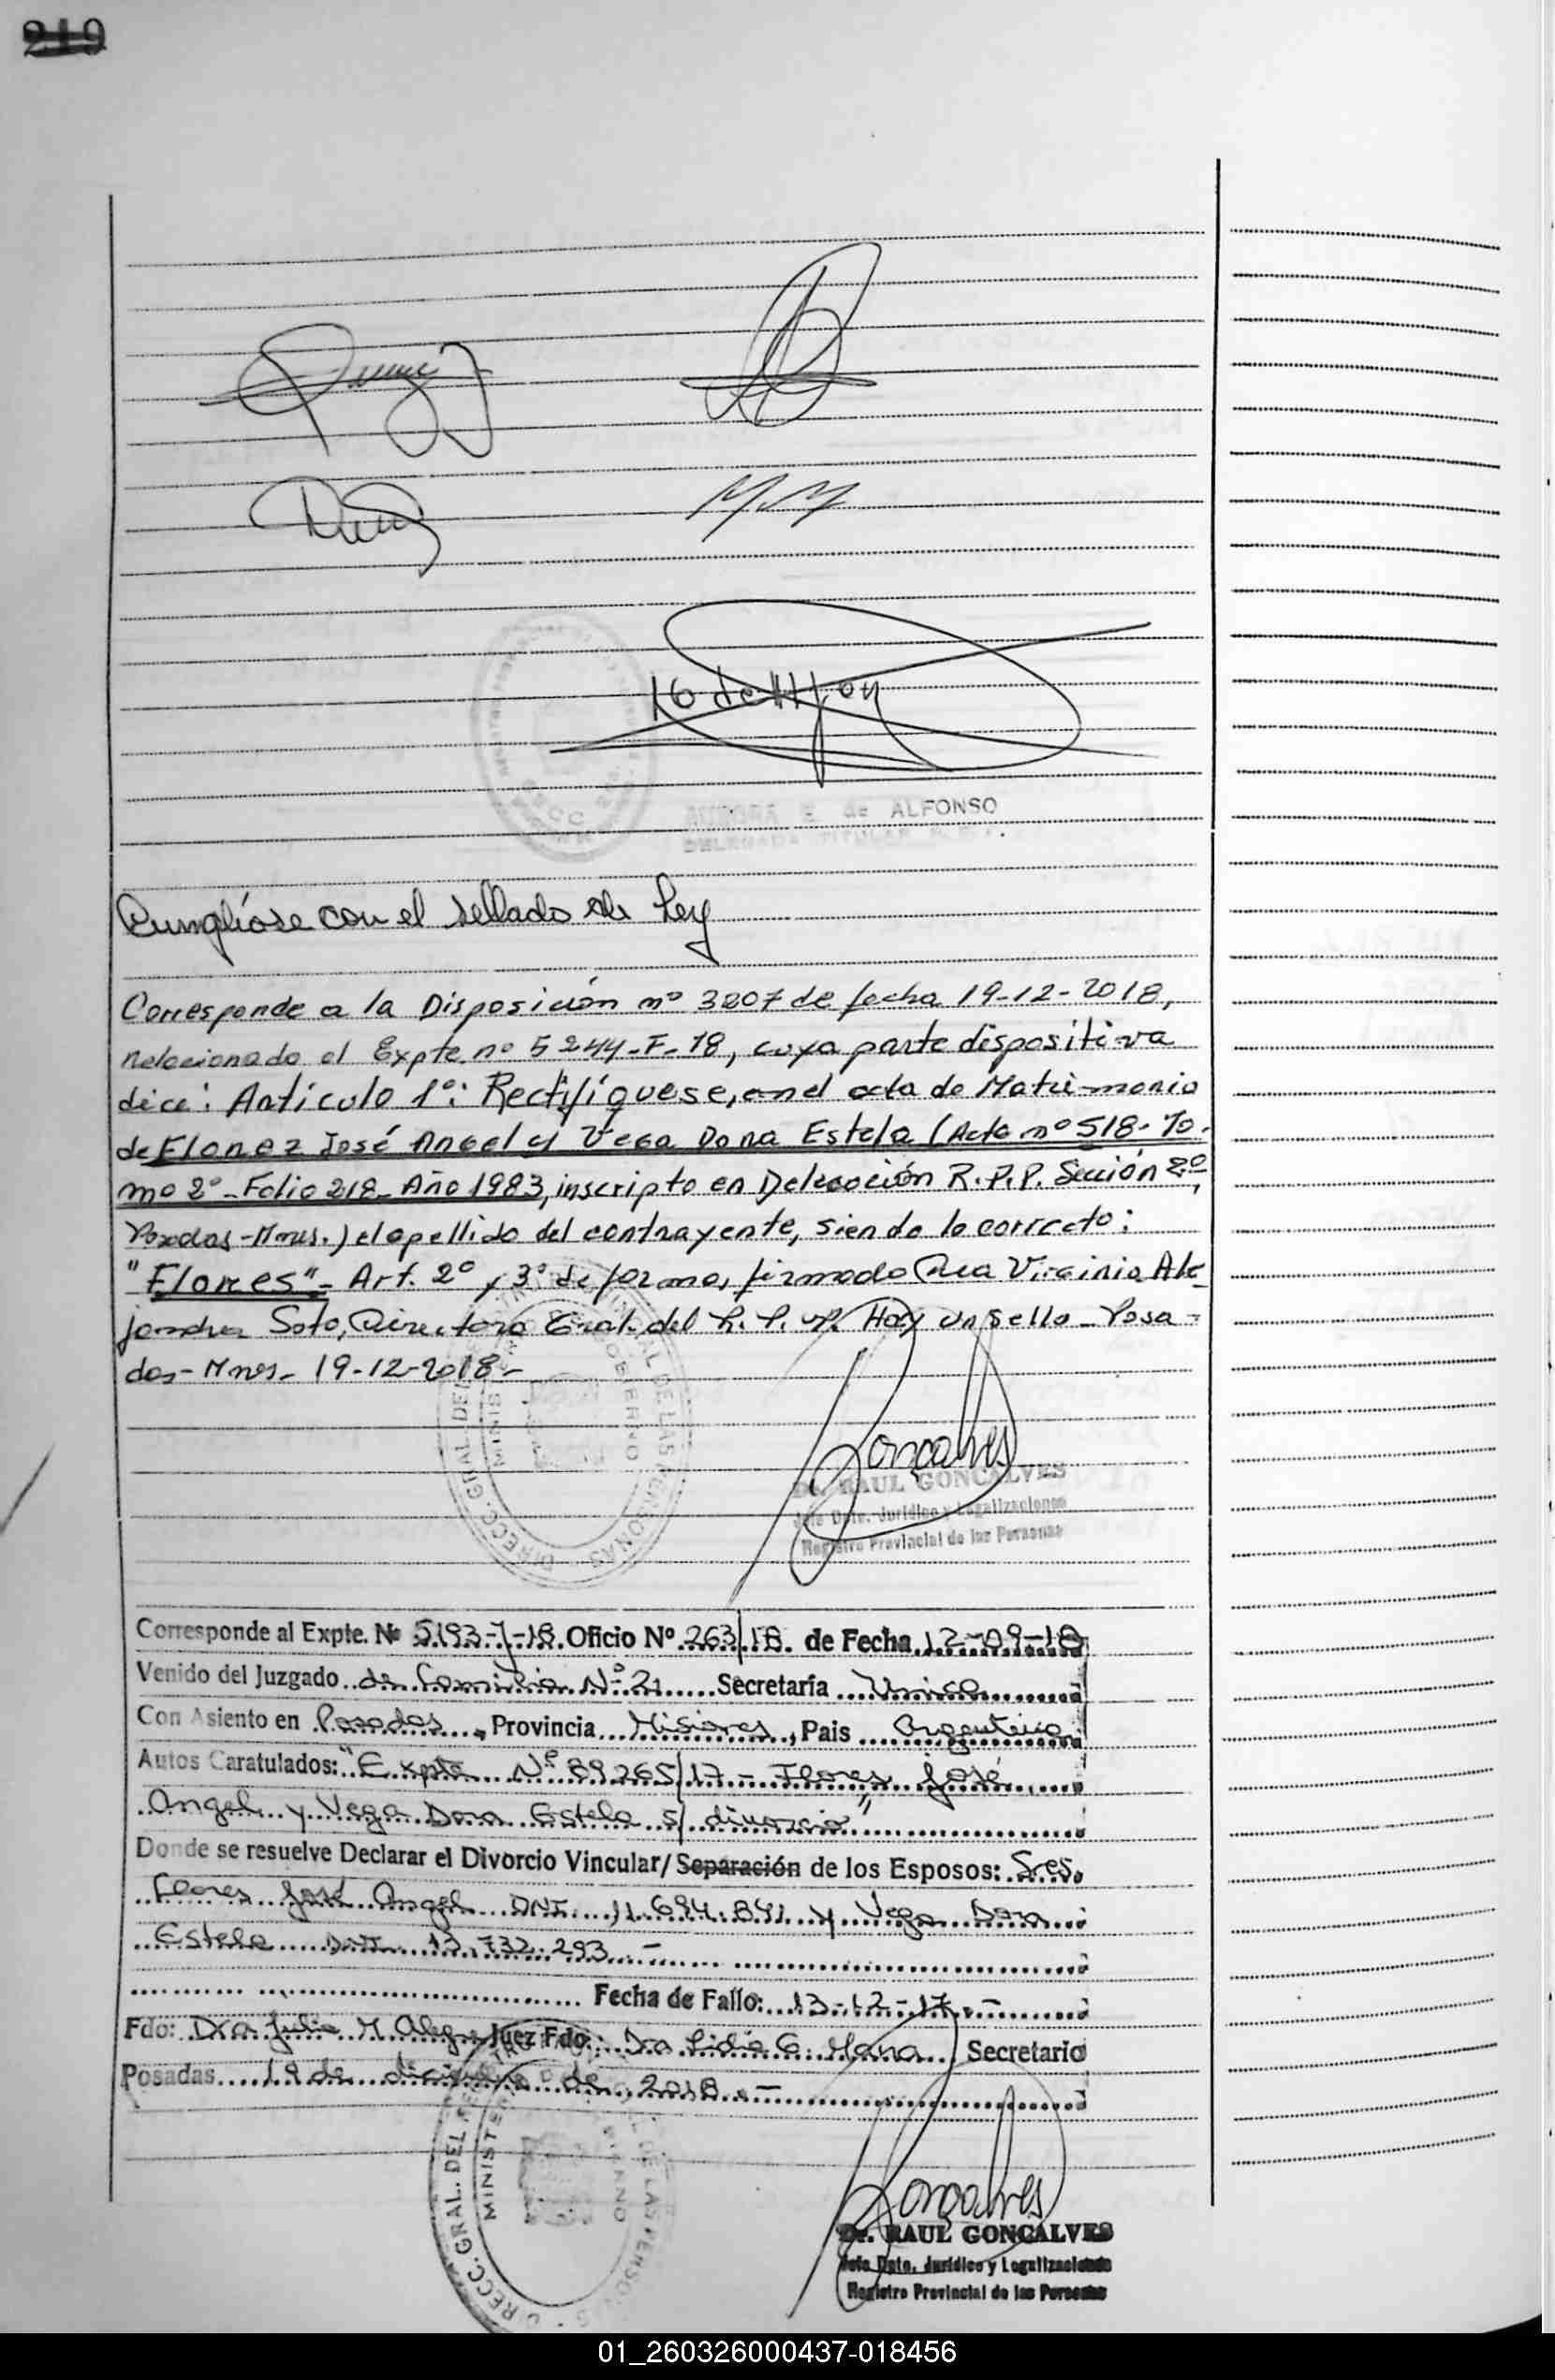 219
AURORA E de ALFONSO
DELEGADA TITULAR
Cumplíose con el sellado de Ley
Corresponde a la Disposición nº 3207 de fecha 19-12-2018,
relacionado al Expte nº 5244-F-18, cuya parte dispositiva
dice: Artículo 1º: Rectifíquese, en el acta de Matrimonio
de Florez José Angel y Vega Dora Estela (Acta nº 518-To-
mo 2º-Folio 218-Año 1983, inscripto en Delegación R.P.P. Sección 2º,
Posadas-Mnes.) el apellido del contrayente, siendo lo correcto:
"Flores"- Art. 2º y 3º de forma, firmado Dra Virginia Ale-
jandra Soto, Directora Gral. del R.P.P. Hay un sello - Posa-
das-Mnes- 19-12-2018-
Goncalves
Dr. RAUL GONCALVES
Jefe Dpto. Jurídico y Legalizaciones
Registro Provincial de las Personas
Corresponde al Expte. Nº 5193-J-18. Oficio Nº 263/18. de Fecha 12-09-18
Venido del Juzgado de Familia Nº 2 Secretaría Unica
Con Asiento en Posadas, Provincia Misiones, Pais Argentina
Autos Caratulados: "Expte Nº 89265/17 - Flores José
Angel y Vega Dora Estela s/ divorcio"
Donde se resuelve Declarar el Divorcio Vincular/Separación de los Esposos: Sres.
Flores José Angel DNI 11.694.841 y Vega Dora
Estela DNI 13.732.293.-
Fecha de Fallo: 13-12-17.-
Fdo: Dra Julia M. Juez Fdo: Dra Lidia G. Secretario
Posadas 19 de diciembre de 2018.-
DIRECC. GRAL. DEL REGISTRO PROVINCIAL DE LAS PERSONAS
MINISTERIO DE GOBIERNO
Goncalves
Dr. RAUL GONCALVES
Jefe Dpto. Jurídico y Legalizaciones
Registro Provincial de las Personas
01_260326000437-018456